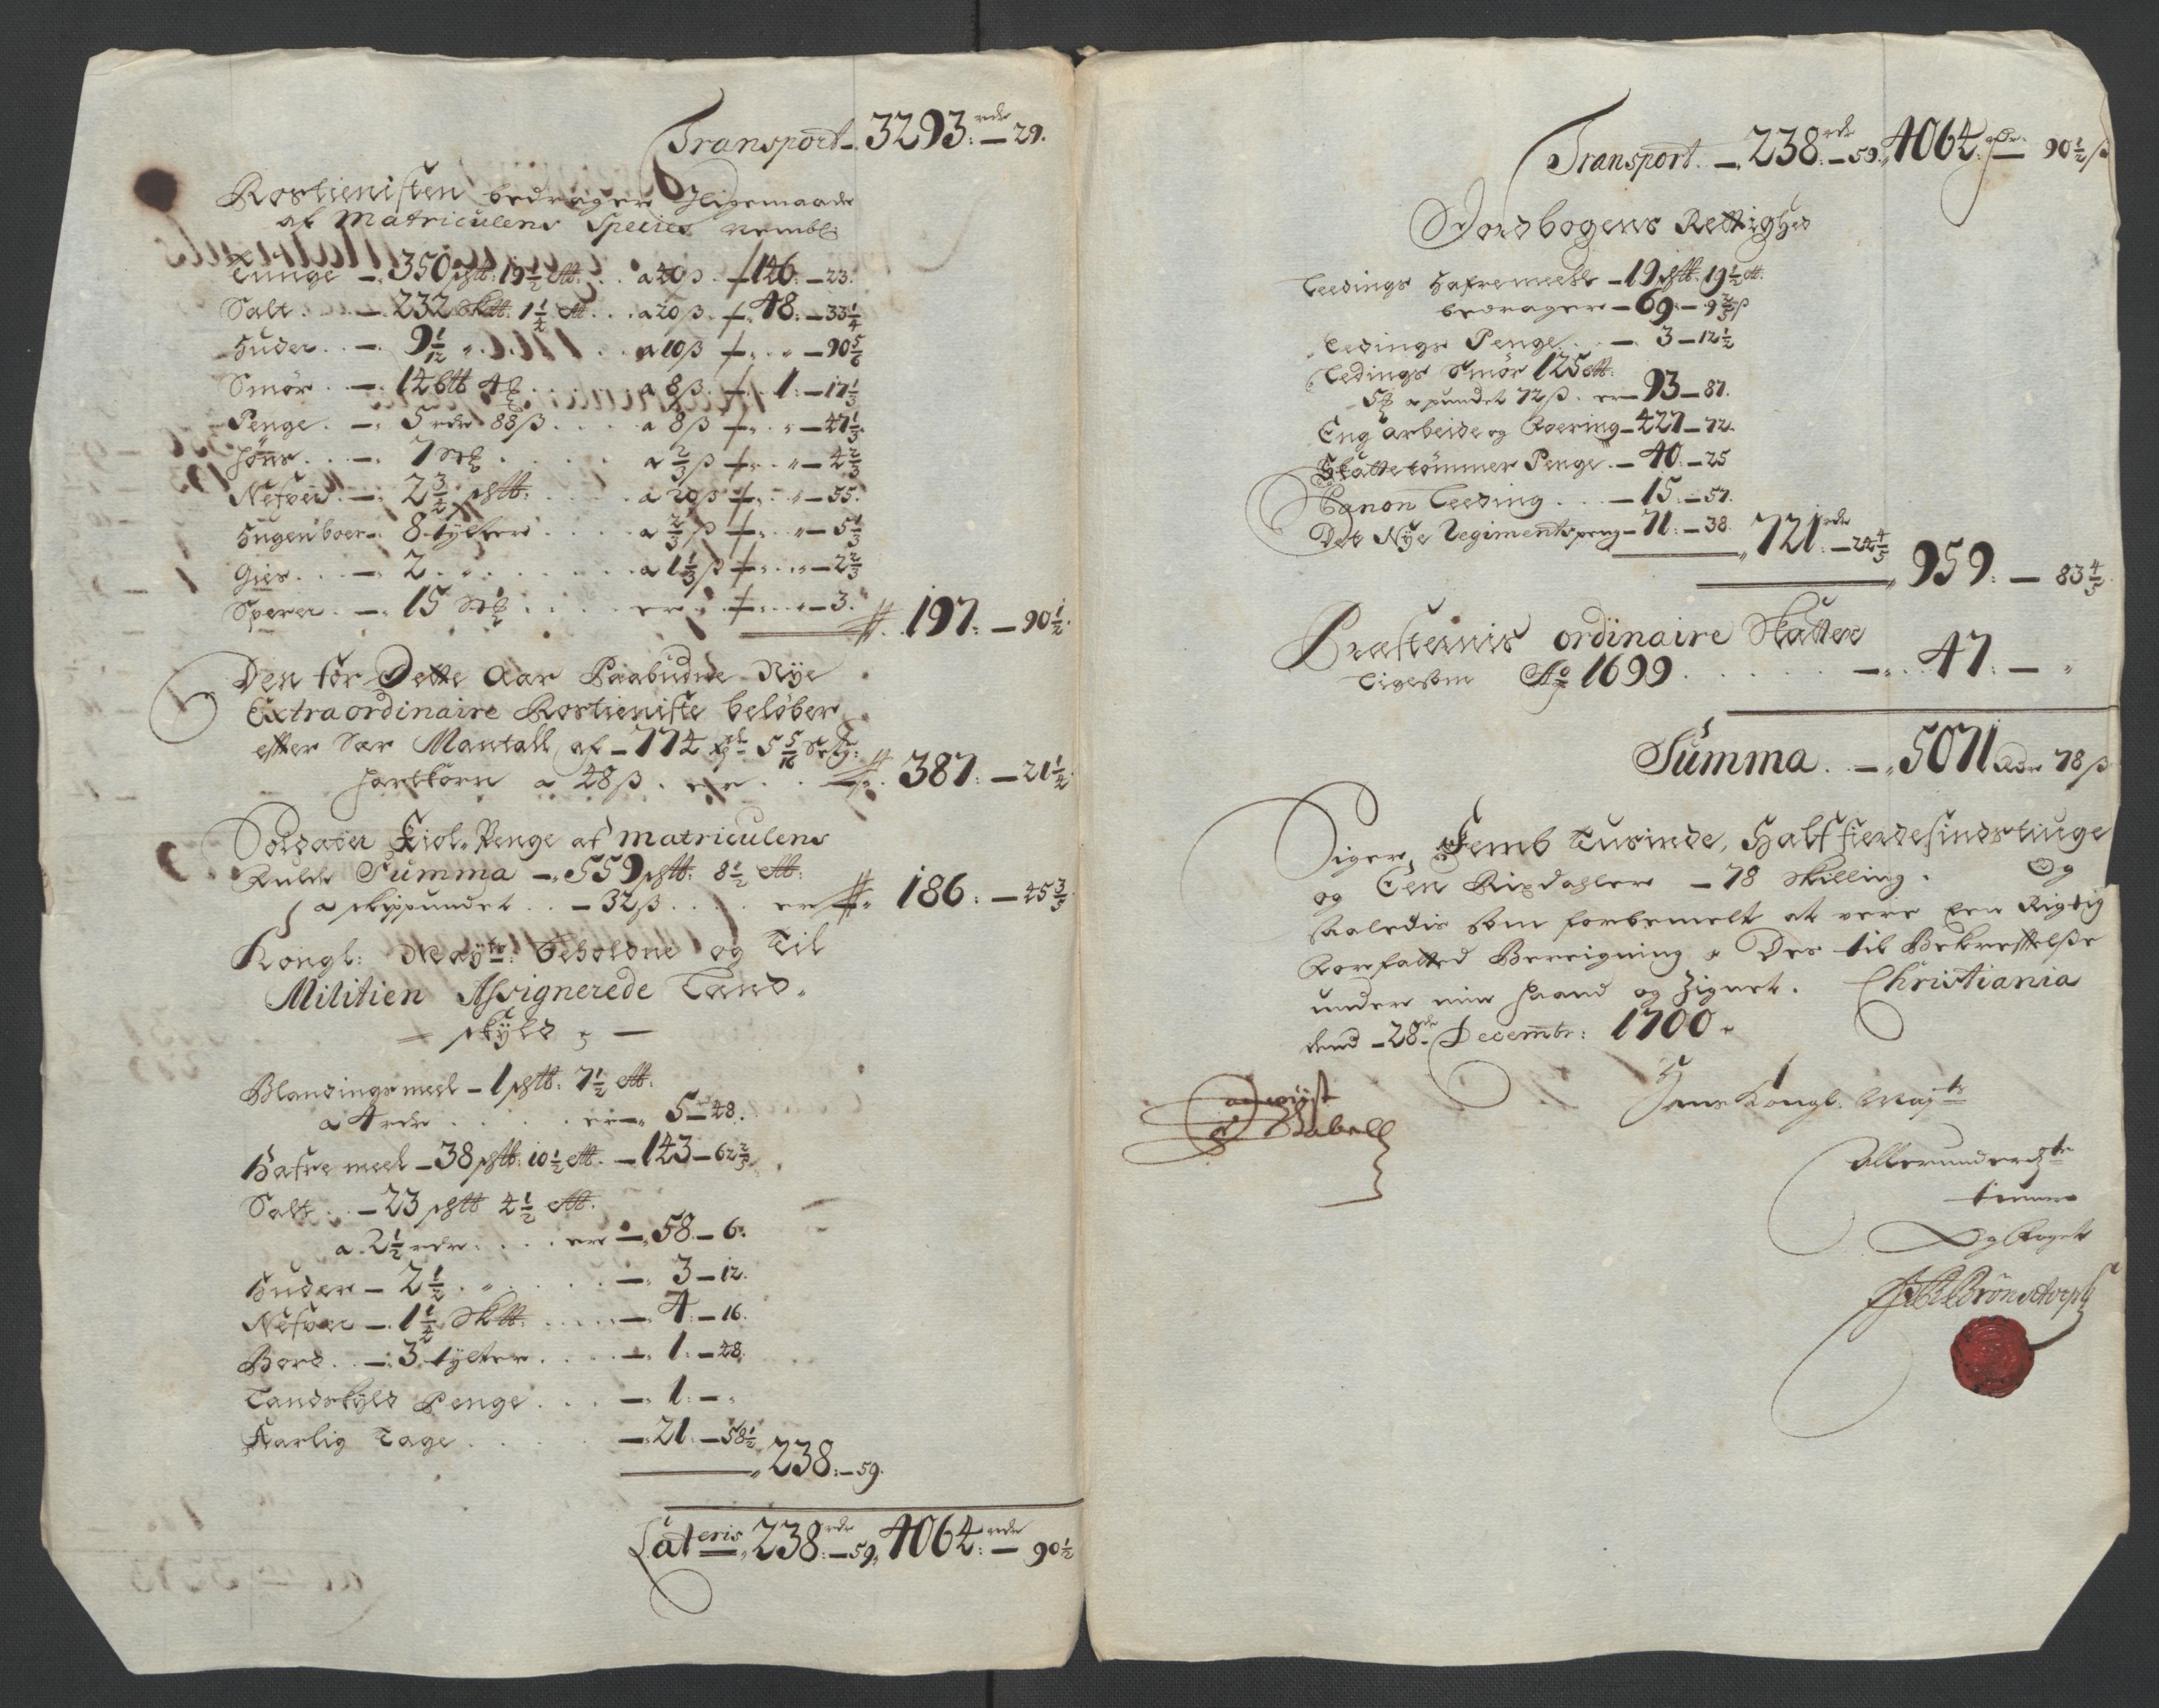 Transport – 3293 rdr – 29.
Rostienisten bedrager Ligemaade
af Matriculens Species nembl:
Tunge – 350 pßtt: 19½ tt. . . a 40 ß – 146: – 23.
Salt . . – 232 Sktt: 1½ tt . . . a 20 ß – 48: – 33¼
Huder . . – 9 1/12 „ . . . a 10 ß – „ – 90 5/6
Smör . . – 146 tt . . . a 8 ß – 1: – 17⅓
Penge . – 5 rdr 88 ß . . . . a 8 ß – „ – 47⅓
Höns . . . – 7 Stk . . . . a ⅔ ß – „ – 4⅔
Nefver . – 2¾ pßtt: . . . . a 20 ß – „ – 55.
Hugenboer – 8 tylter . . . . a ⅔ ß – „ – 5⅓
Gies . . . – 2 . „ . . . . . . a 1⅓ ß – „ – 2⅔
Sperer . – 15 Stk . . . . er . – „ – 3. 197: – 90½.
Den for Dette Aar Paabudne Nye
Extraordinaire Rostieniste beløber
efter Sær Mantall af – 774 5 5/16
Hartkorn a 48 ß . er . . 387: – 21¼
Soldater Kiol-Penge af Matriculens
Fulde Summa – 559 pßtt: 8½ tt:
a skippundet . . – 32 ß . . . . er 186: – 45⅗
Kongl: Mayts: beholdne og Til
Militien Assignerede Land-
– skyld –
Blandingsmeel – 1 pßtt: 7½ tt:
a 4 rdr . . . . . er – 5 – 48.
Hafre meel – 38 pßtt: 10½ tt. – 143 – 62⅖
Salt . . – 23 pßtt 4½ tt.
a 2½ rdr . . . . er – 58 – 6.
Huder – 2½ . „ . . . . . – 3 – 12.
Nefver – 1¼ Sktt . . . . . – 4 – 16.
Bord . . – 3 tylter . . . . – 1 – 48.
Landskyld Penge . . . – 1: – „
Aarlig Tage . . . . . – 21 – 58½
238: – 59.
Lateris 238 rdr – 59, 4064 rdr – 90½
Transport . – 238 rdr – 59. 4064 – 90½ ß
Jordbogens Rettighed
Leedings Hafremeell – 19 pßtt. 19½ tt.
bedrager – 69 – 9⅗ ß
Ledings Penge . . – 3 – 12½
Ledings Smør 125 tt:
a pundet 72 ß . er – 93 – 87.
Eng arbeide og Foering – 427 – 72.
Skattetömmer Penge . – 40. – 25
Canon Leeding . . . – 15 – 57.
Det Nye Regimentspeng – 71 – 38. 721 rdr – 24⅘
959: – 83⅘
Præsternis ordinaire Skatter
Ligesom Ao 1699 . . . . . . – 47: – „
Summa . – 5071 Rdr 78 ß
Siger, Femb Tusinde, Halffierdesindstiuge
og Een Rixdahler – 78 Skilling. Og
saaledis som forbemelt at vere een Rigtig
Forfatted Beregning . Des til Bekreftelße
under min Haand og Zignet. Christiania
dend – 28de Decembr: 1700
Stabell
Hans Kongl. Mayts
Allerunderdste
tiener
Og Foget
Brönstorph